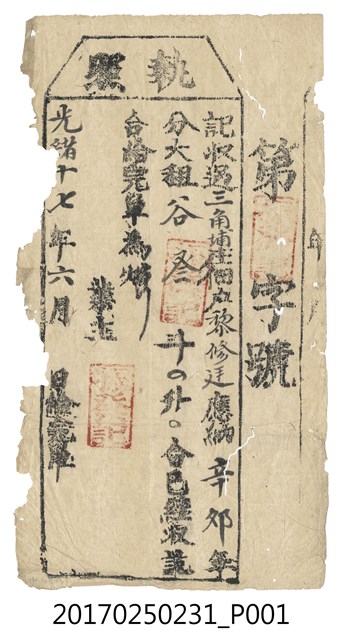 執照
第 字號
記收過三角埔庄佃丸黎修廷應納辛卯年
分大租谷叁斗0升0合已經收訖
合給完單為炤
業主
光緒十七年六月 日給完單
20170250231_P001